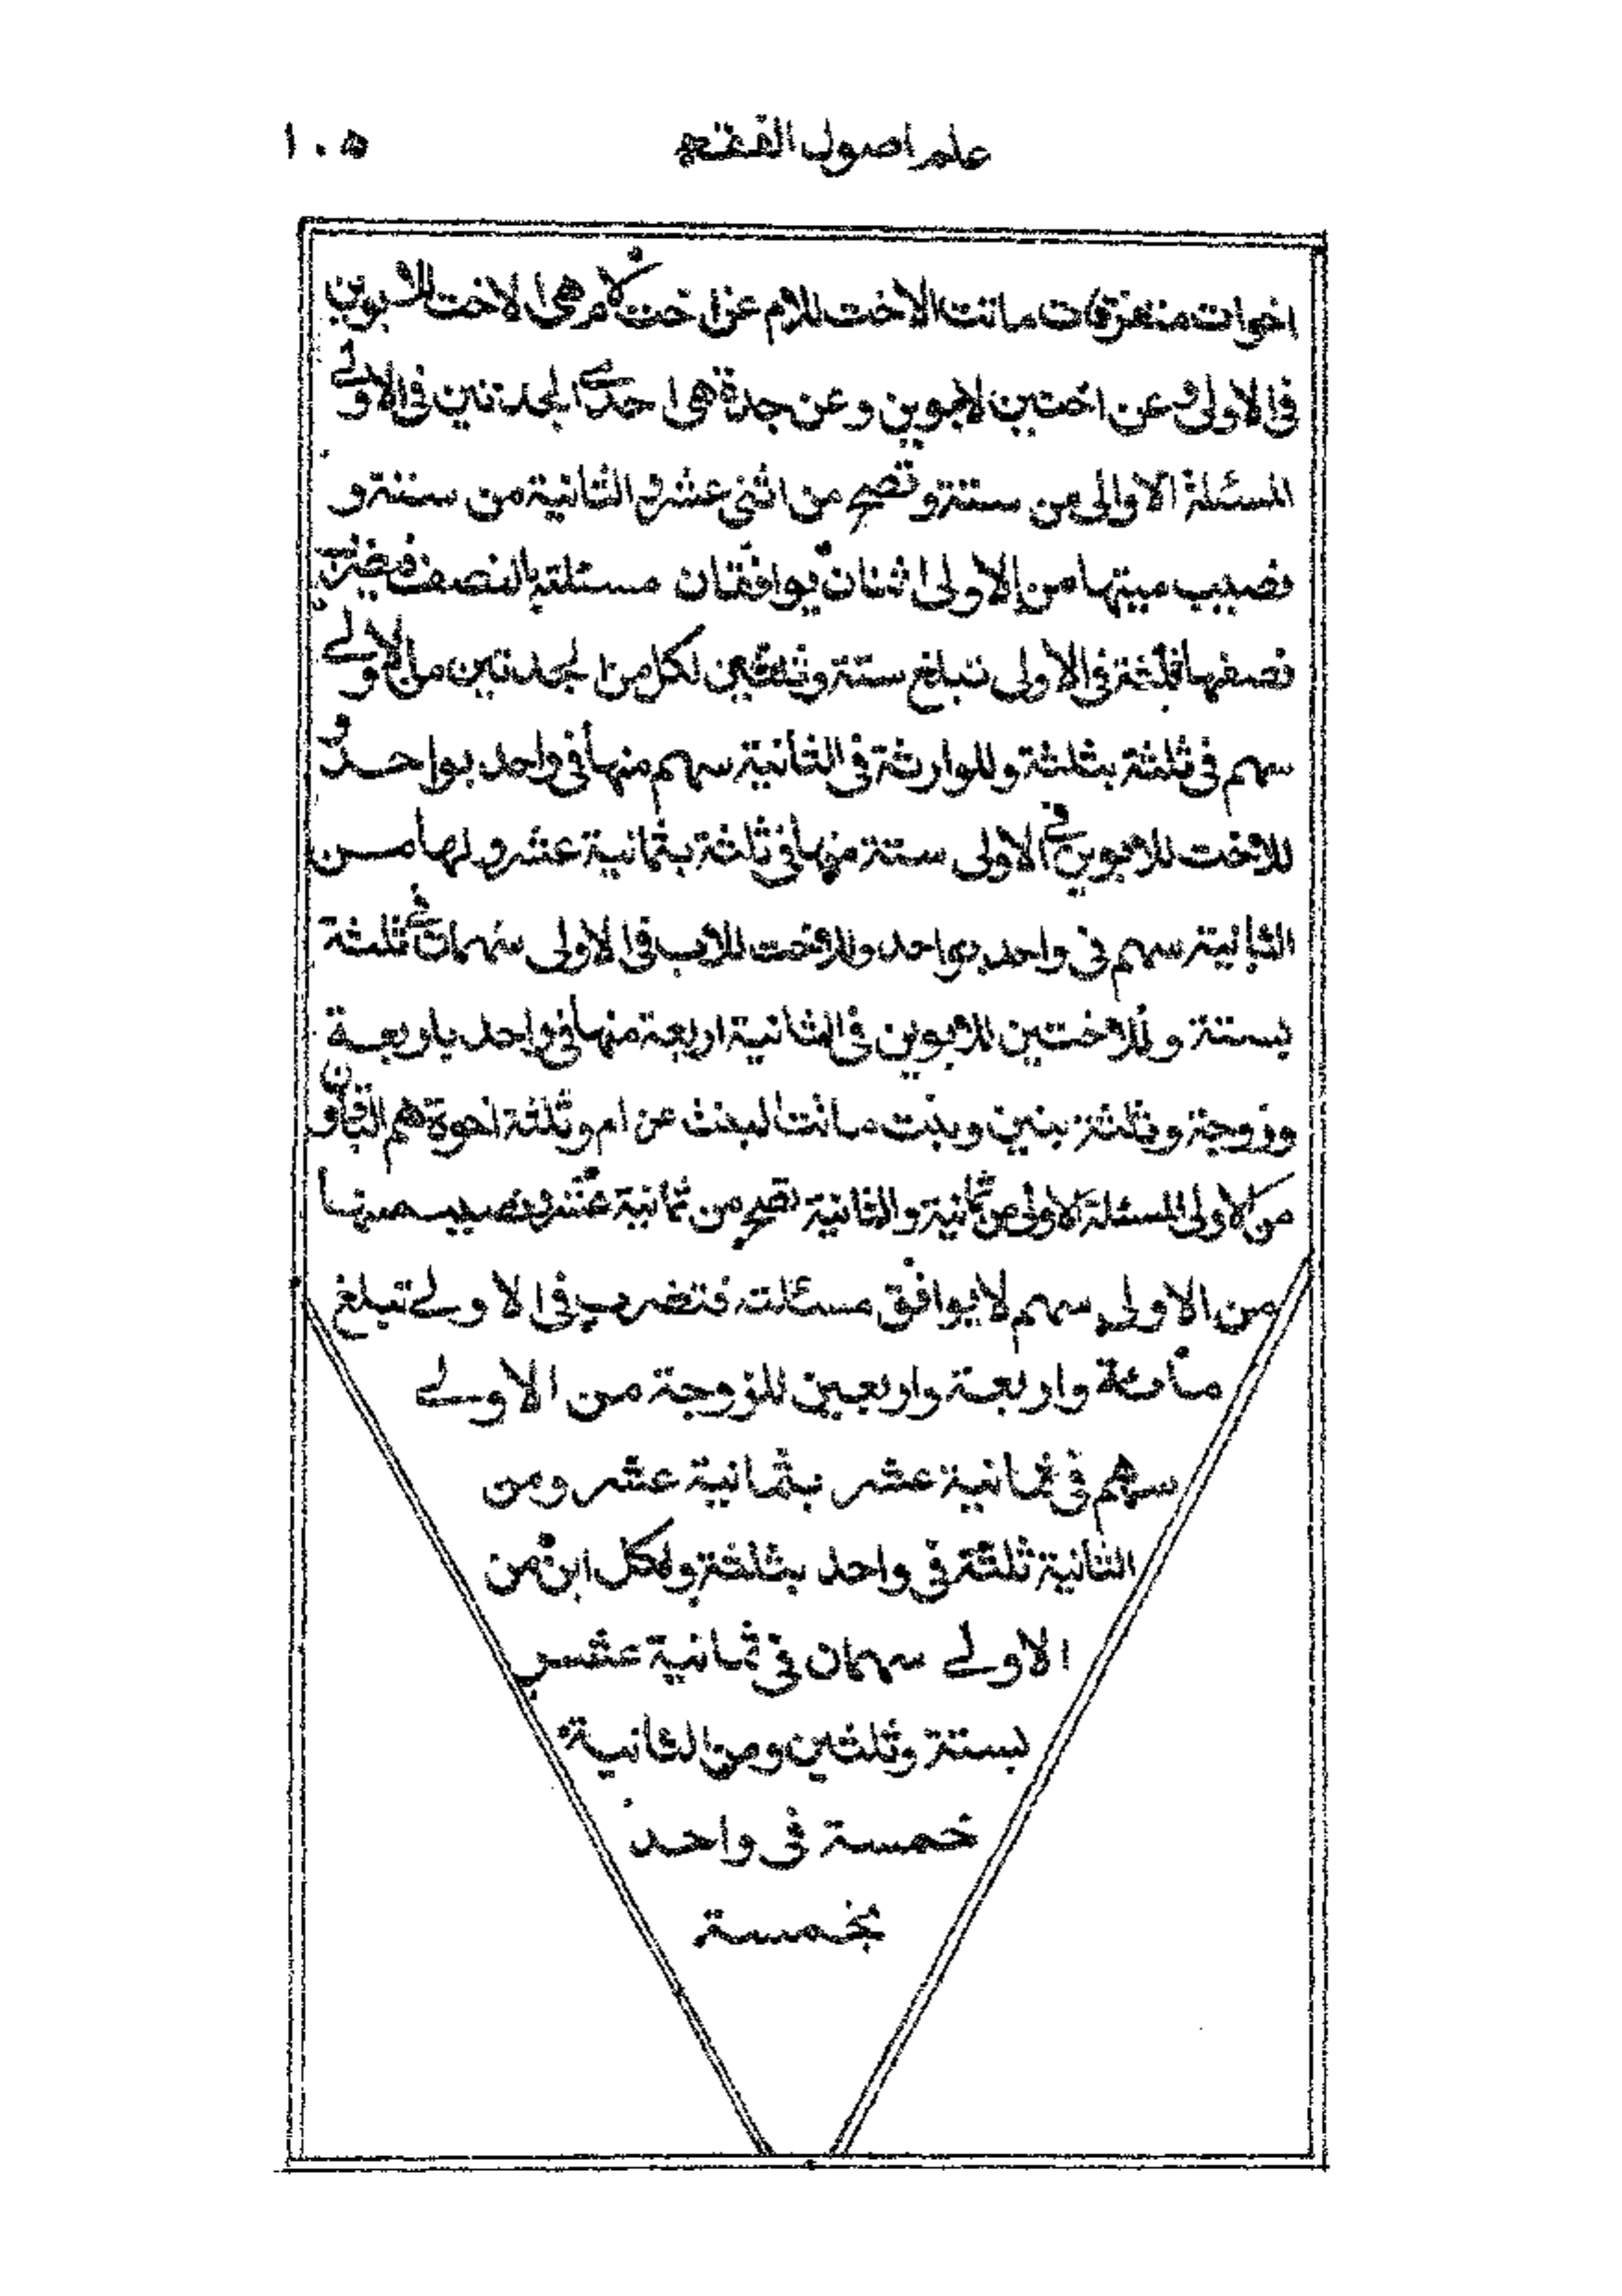 علم اصول الفقه ١٠٥
اخوات متفرقات ماتت الاخت للام عن اخت لام هى الاخت للابوين
فى الاولى وعن اختين لابوين وعن جدة هى احدى الجدتين فى الاولى
المسئلة الاولى من ستة وتصح من اثنى عشر والثانية من ستة و
نصيب ميتها من الاولى اثنان يوافقان مسئلته بالنصف فتضرب
نصفها ثلثة فى الاولى تبلغ ستة وثلثين لكل من الجدتين من الاولى
سهم فى ثلثة بثلثة وللوارثة فى الثانية سهم منها فى واحد بواحد و
للاخت للابوين فى الاولى ستة منها فى ثلثة بثمانية عشر ولها من
الثانية سهم فى واحد بواحد وللاخت للاب فى الاولى سهمان فى ثلثة
بستة وللاختين للابوين فى الثانية اربعة منها فى واحد باربعة
وزوجة وثلثة بنين وبنت ماتت البنت عن ام وثلثة اخوة هم الباقون
من الاولى المسئلة الاولى من ثمانية والثانية تصح من ثمانية عشر ونصيب ميتها
من الاولى سهم لا يوافق مسئلته فتضرب فى الاولى تبلغ
مائة واربعة واربعين للزوجة من الاولى
سهم فى ثمانية عشر بثمانية عشر ومن
الثانية ثلثة فى واحد بثلثة ولكل ابن من
الاولى سهمان فى ثمانية عشر
بستة وثلثين ومن الثانية
خمسة فى واحد
بخمسة